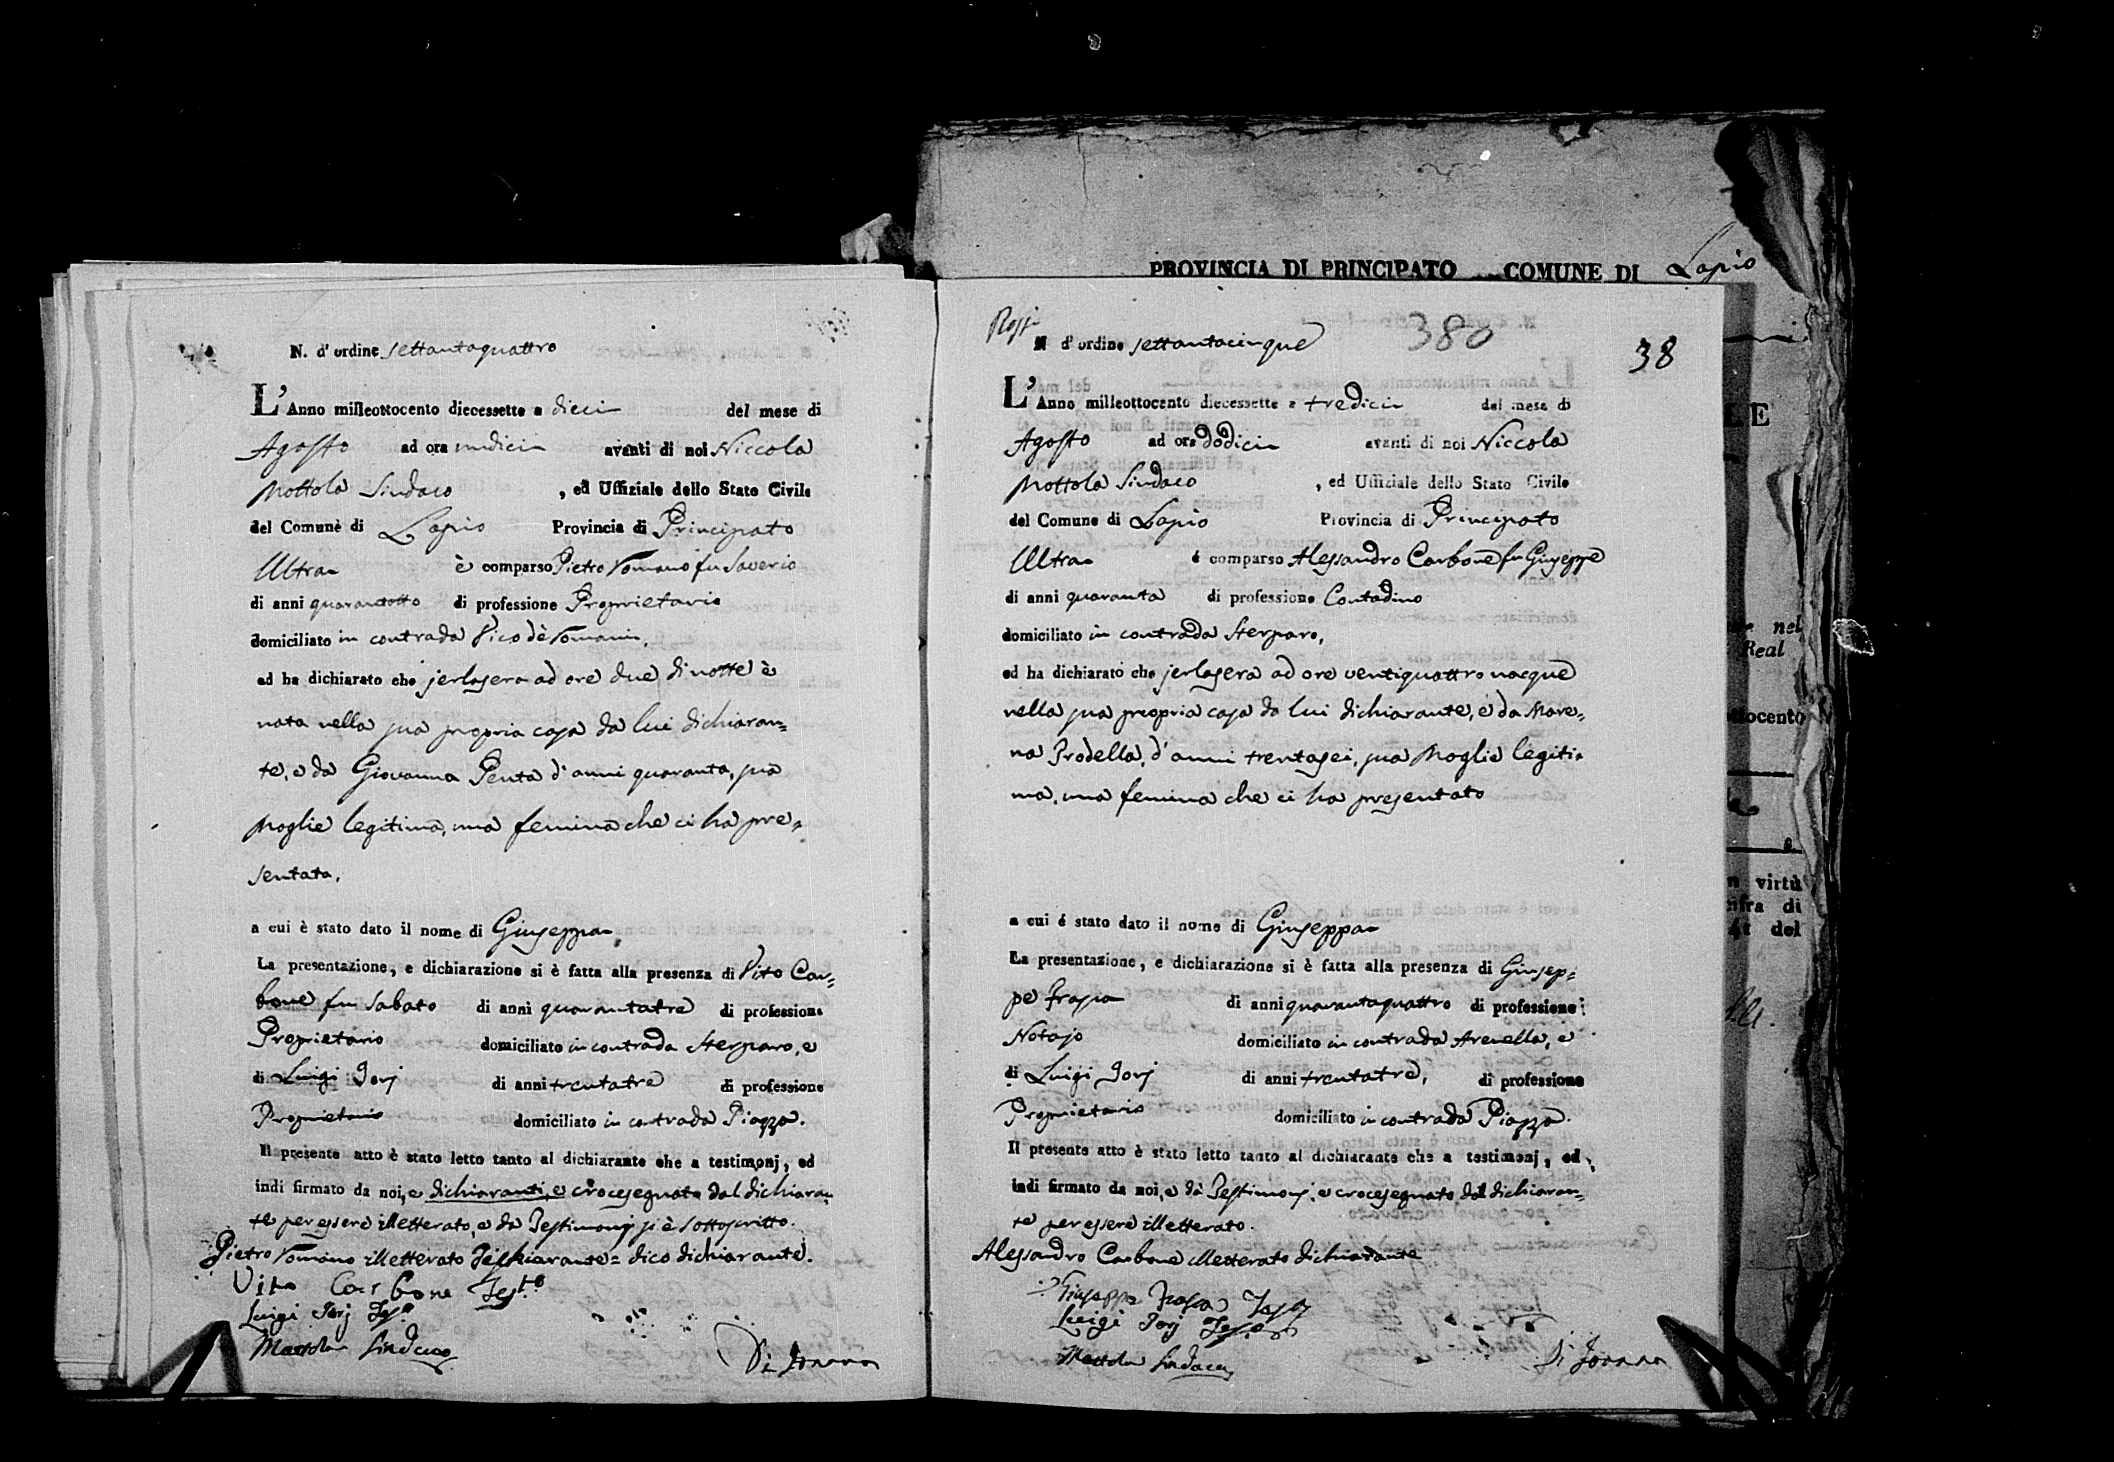 PROVINCIA DI PRINCIPATO COMUNE DI Lapio
N. d'ordine settantaquattro
L'Anno milleottocento diecessette a dieci del mese di
Agosto ad ora undici avanti di noi Niccola
Mottola Sindaco , ed Uffiziale dello Stato Civile
del Comune di Lapio Provincia di Principato
Ultra è comparso Pietro Romano fu Saverio
di anni quarantotto di professione Proprietario
domiciliato in contrada Vico dè Romani,
ed ha dichiarato che jerlasera ad ore due di notte è
nata nella sua propria casa da lui dichiaran=
te, e da Giovanna Penta d'anni quaranta, sua
Moglie legitima, una femina che ci ha pre=
sentata.
a cui è stato dato il nome di Giuseppa
La presentazione, e dichiarazione si è fatta alla presenza di Vito Car=
bone fu Sabato di anni quarantatre di professione
Proprietario domiciliato in contrada Sterparo, e
di Luigi Jorj di anni trentatre di professione
Proprietario domiciliato in contrada Piazza.
Il presente atto è stato letto tanto al dichiarante che a testimonj, ed
indi firmato da noi, e dichiaranti, e crocesegnato dal dichiaran
te per essere illetterato, e da Testimonj si è sottoscritto.
Pietro Romano illetterato dichiarante = dico dichiarante.
Vito Carbone Test.o
Luigi Jorj Tes.o
Mottola Sindaco
Di Joanna
Rossi
N d'ordine settantacinque
380
38
L'Anno milleottocento diecessette a tredici del mese di
Agosto ad ora dodici avanti di noi Niccola
Mottola Sindaco , ed Uffiziale dello Stato Civile
del Comune di Lapio Provincia di Principato
Ultra é comparso Alessandro Carbone fu Giuseppe
di anni quaranta di professione Contadino
domiciliato in contrada Sterparo,
ed ha dichiarato che jerlasera ad ore ventiquattro nacque
nella sua propria casa da lui dichiarante, e da More=
na Prodella, d'anni trentasei, sua Moglie legiti=
ma, una femina che ci ha presentato
a cui é stato dato il nome di Giuseppa
La presentazione, e dichiarazione si è fatta alla presenza di Giusep=
pe Frasca di anni quarantaquattro di professione
Notajo domiciliato in contrada Arenella, e
di Luigi Jorj di anni trentatre, di professione
Proprietario domiciliato in contrada Piazza.
Il presente atto è stato letto tanto al dichiarante che a testimonj, ed
indi firmato da noi, e dà Testimonj, e crocesegnato dal dichiaran=
te per essere illetterato.
Alessandro Carbone illetterato dichiarante
Giuseppe
Luigi Jorj
Mottola Sindaco
Di Joanna
E
nel
Real
ttocento
virtù
cifra di
del